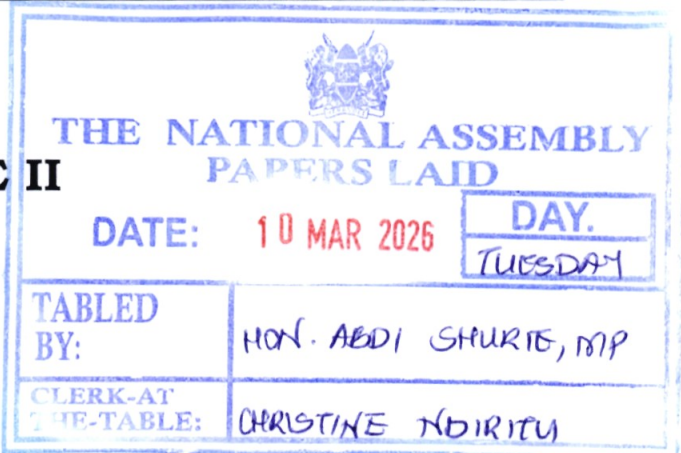 THE NATIONAL ASSEMBLY
PAPERS LAID
II
DATE: 10 MAR 2026
DAY.
TUESDAY
TABLED BY:
HON. ABDI SHURIE, MP
CLERK-AT THE-TABLE:
CHRISTINE NDIRITU